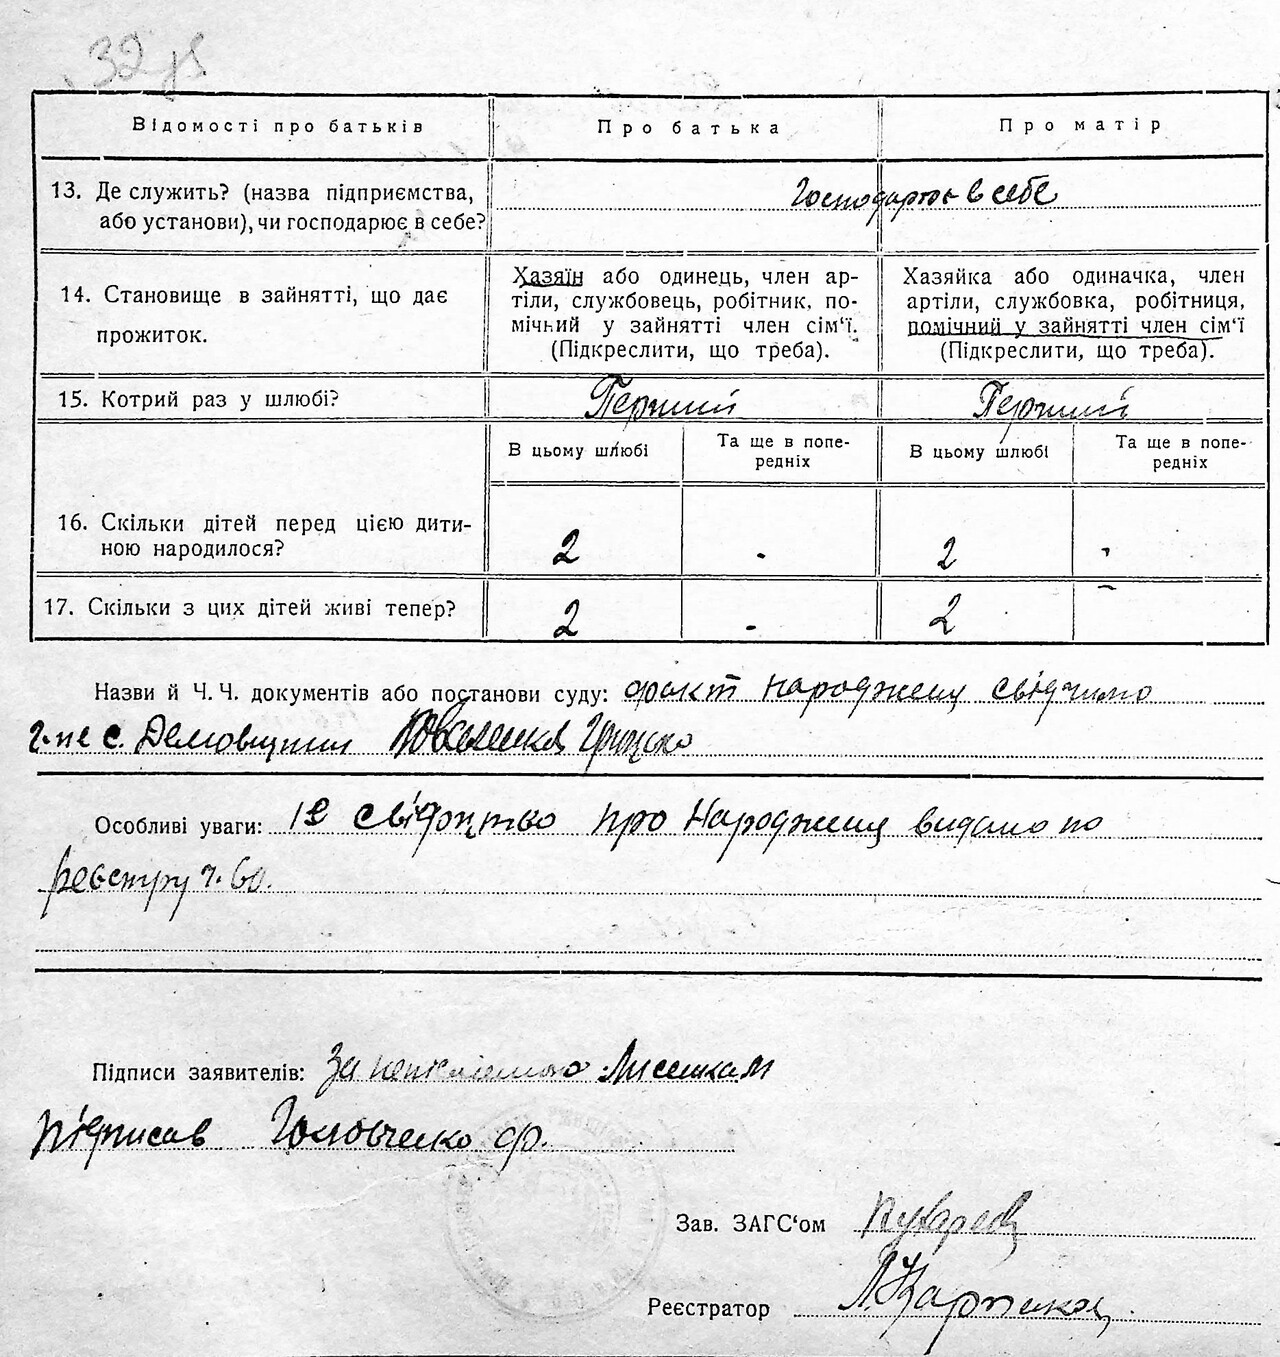 32
Відомості про батьків
Про батька
Про матір
13. Де служить? (назва підприємства,
або установи), чи господарює в себе?
Господарює в себе
14. Становище в зайнятті, що дає
прожиток.
Хазяїн або одинець, член ар-
тіли, службовець, робітник, по-
мічний у зайнятті член сім'ї.
(Підкреслити, що треба).
Хазяйка або одиначка, член
артіли, службовка, робітниця,
помічний у зайнятті член сім'ї
(Підкреслити, що треба).
15. Котрий раз у шлюбі?
Перший
Перший
В цьому шлюбі
Та ще в попе-
редніх
В цьому шлюбі
Та ще в попе-
редніх
16. Скільки дітей перед цією дити-
ною народилося?
2
-
2
-
17. Скільки з цих дітей живі тепер?
2
-
2
-
Назви й Ч. Ч. документів або постанови суду: факт народження свідчимо
с. Грицько
Особливі уваги: про народження видано по
реєстру ч. 60.
Підписи заявителів: За
підписав Головченко Ф.
Зав. ЗАГС'ом
Реєстратор